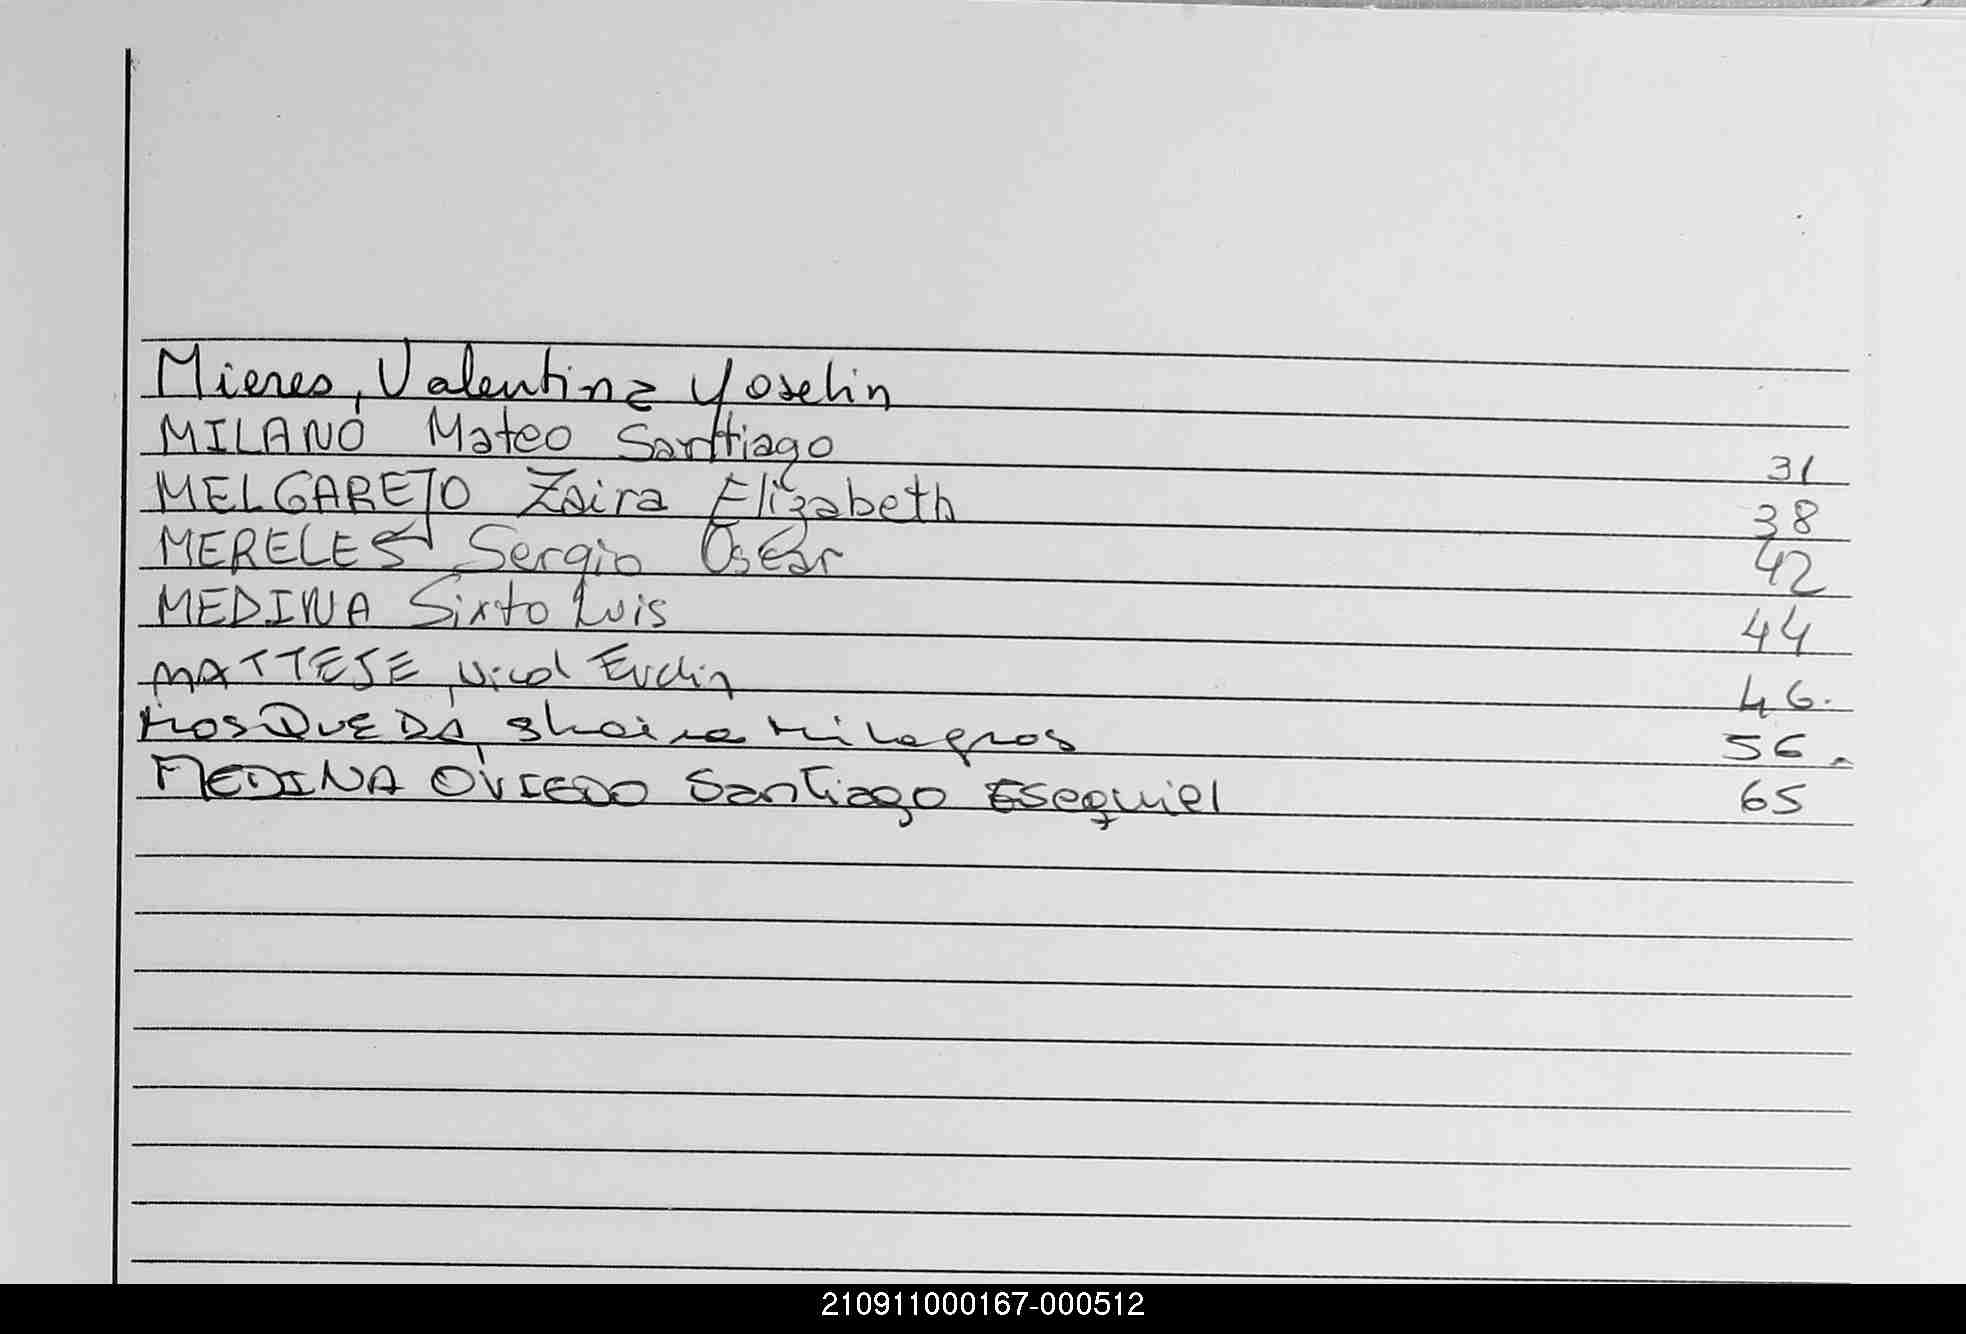 Mieres, Valentina Yoselin
MILANO Mateo Santtiago 31
MELGAREJO Zaira Elizabeth 38
MERELES Sergio Oscar 42
MEDINA Sixto Luis 44
MATTEJE, Nicol 46.
MOSQUEDA, Shaira Milagros 56.
MEDINA OVIEDO Santiago ESequiel 65
210911000167-000512